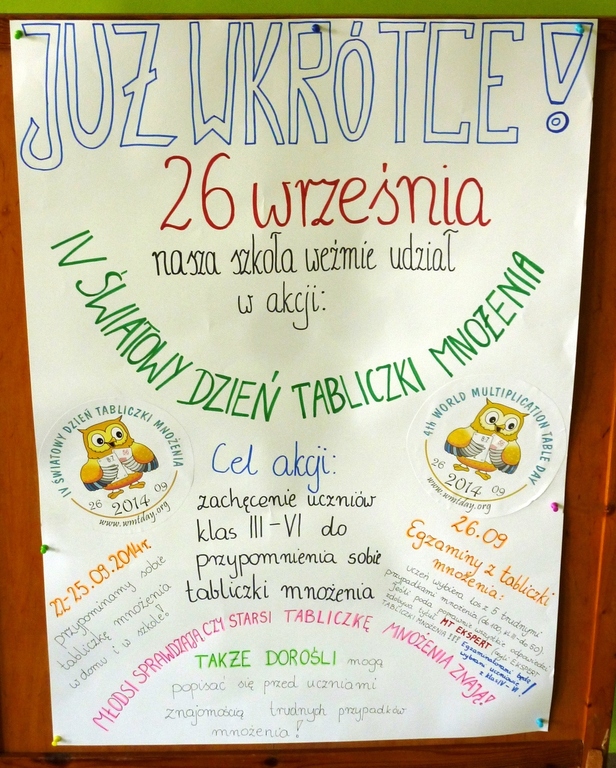 JUŻ WKRÓTCE!
26 września
nasza szkoła weźmie udział
w akcji:
IV ŚWIATOWY DZIEŃ TABLICZKI MNOŻENIA
IV ŚWIATOWY DZIEŃ TABLICZKI MNOŻENIA
26 2014 09
www.wmtday.org
4th WORLD MULTIPLICATION TABLE DAY
26 2014 09
www.wmtday.org
Cel akcji:
zachęcenie uczniów
klas III-VI do
przypomnienia sobie
tabliczki mnożenia
22-25.09.2014r.
przypominamy sobie
tabliczkę mnożenia
w domu i w szkole!
26.09
Egzaminy z tabliczki
mnożenia:
uczeń wybiera los z 5 trudnymi
przypadkami mnożenia (do 100, kl. II - do 50).
Jeśli poda poprawnie wszystkie odpowiedzi
zdobywa tytuł MT EKSPERT (czyli EKSPERT
TABLICZKI MNOŻENIA !!!
Egzaminatorami będą
wybrani uczniowie
z klas IV-VI!
MŁODSI SPRAWDZAJĄ CZY STARSI TABLICZKĘ MNOŻENIA ZNAJĄ!
TAKŻE DOROŚLI mogą
popisać się przed uczniami
znajomością trudnych przypadków
mnożenia!